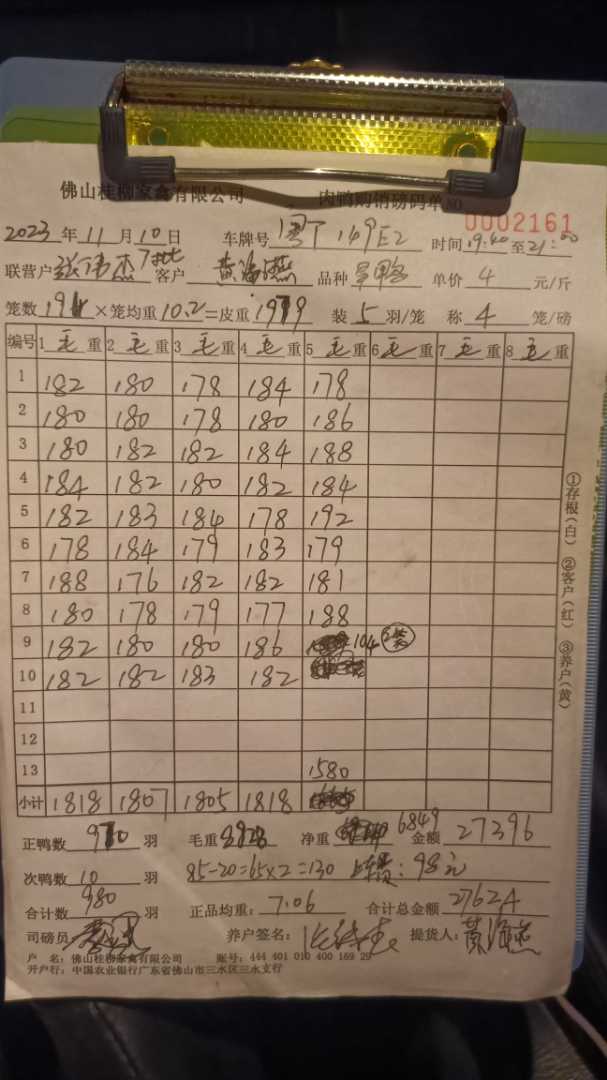 佛山桂柳家禽有限公司 肉鸭购销磅码单 NO 0002161
2023年11月10日 车牌号 粤T149E2 时间19:40至21:00
联营户 张伟杰 客户 黄海燕 品种 单价 4 元/斤
笼数 ×笼均重10.2=皮重 装5羽/笼 称4笼/磅
编号 1毛重 2毛重 3毛重 4毛重 5毛重 6毛重 7毛重 8毛重
1 182 180 178 184 178
2 180 180 178 180 186
3 180 182 182 184 188
4 184 182 180 182 184
5 182 183 184 178 192
6 178 184 179 183 179
7 188 176 182 182 181
8 180 178 179 177 188
9 182 180 180 186 104
10 182 182 183 182
11
12
13 1580
小计 1818 1807 1805 1818
正鸭数 羽 毛重 8828 净重 6849 金额 27396
次鸭数 10 羽 85-20=65×2=130 98元
合计数 980 羽 正品均重:7.06 合计总金额 27624
司磅员 养户签名: 提货人: 黄海燕
户 名:佛山桂柳家禽有限公司 账号:444 401 010 400 169 29
开户行:中国农业银行广东省佛山市三水区三水支行
①存根(白) ②客户(红) ③养户(黄)